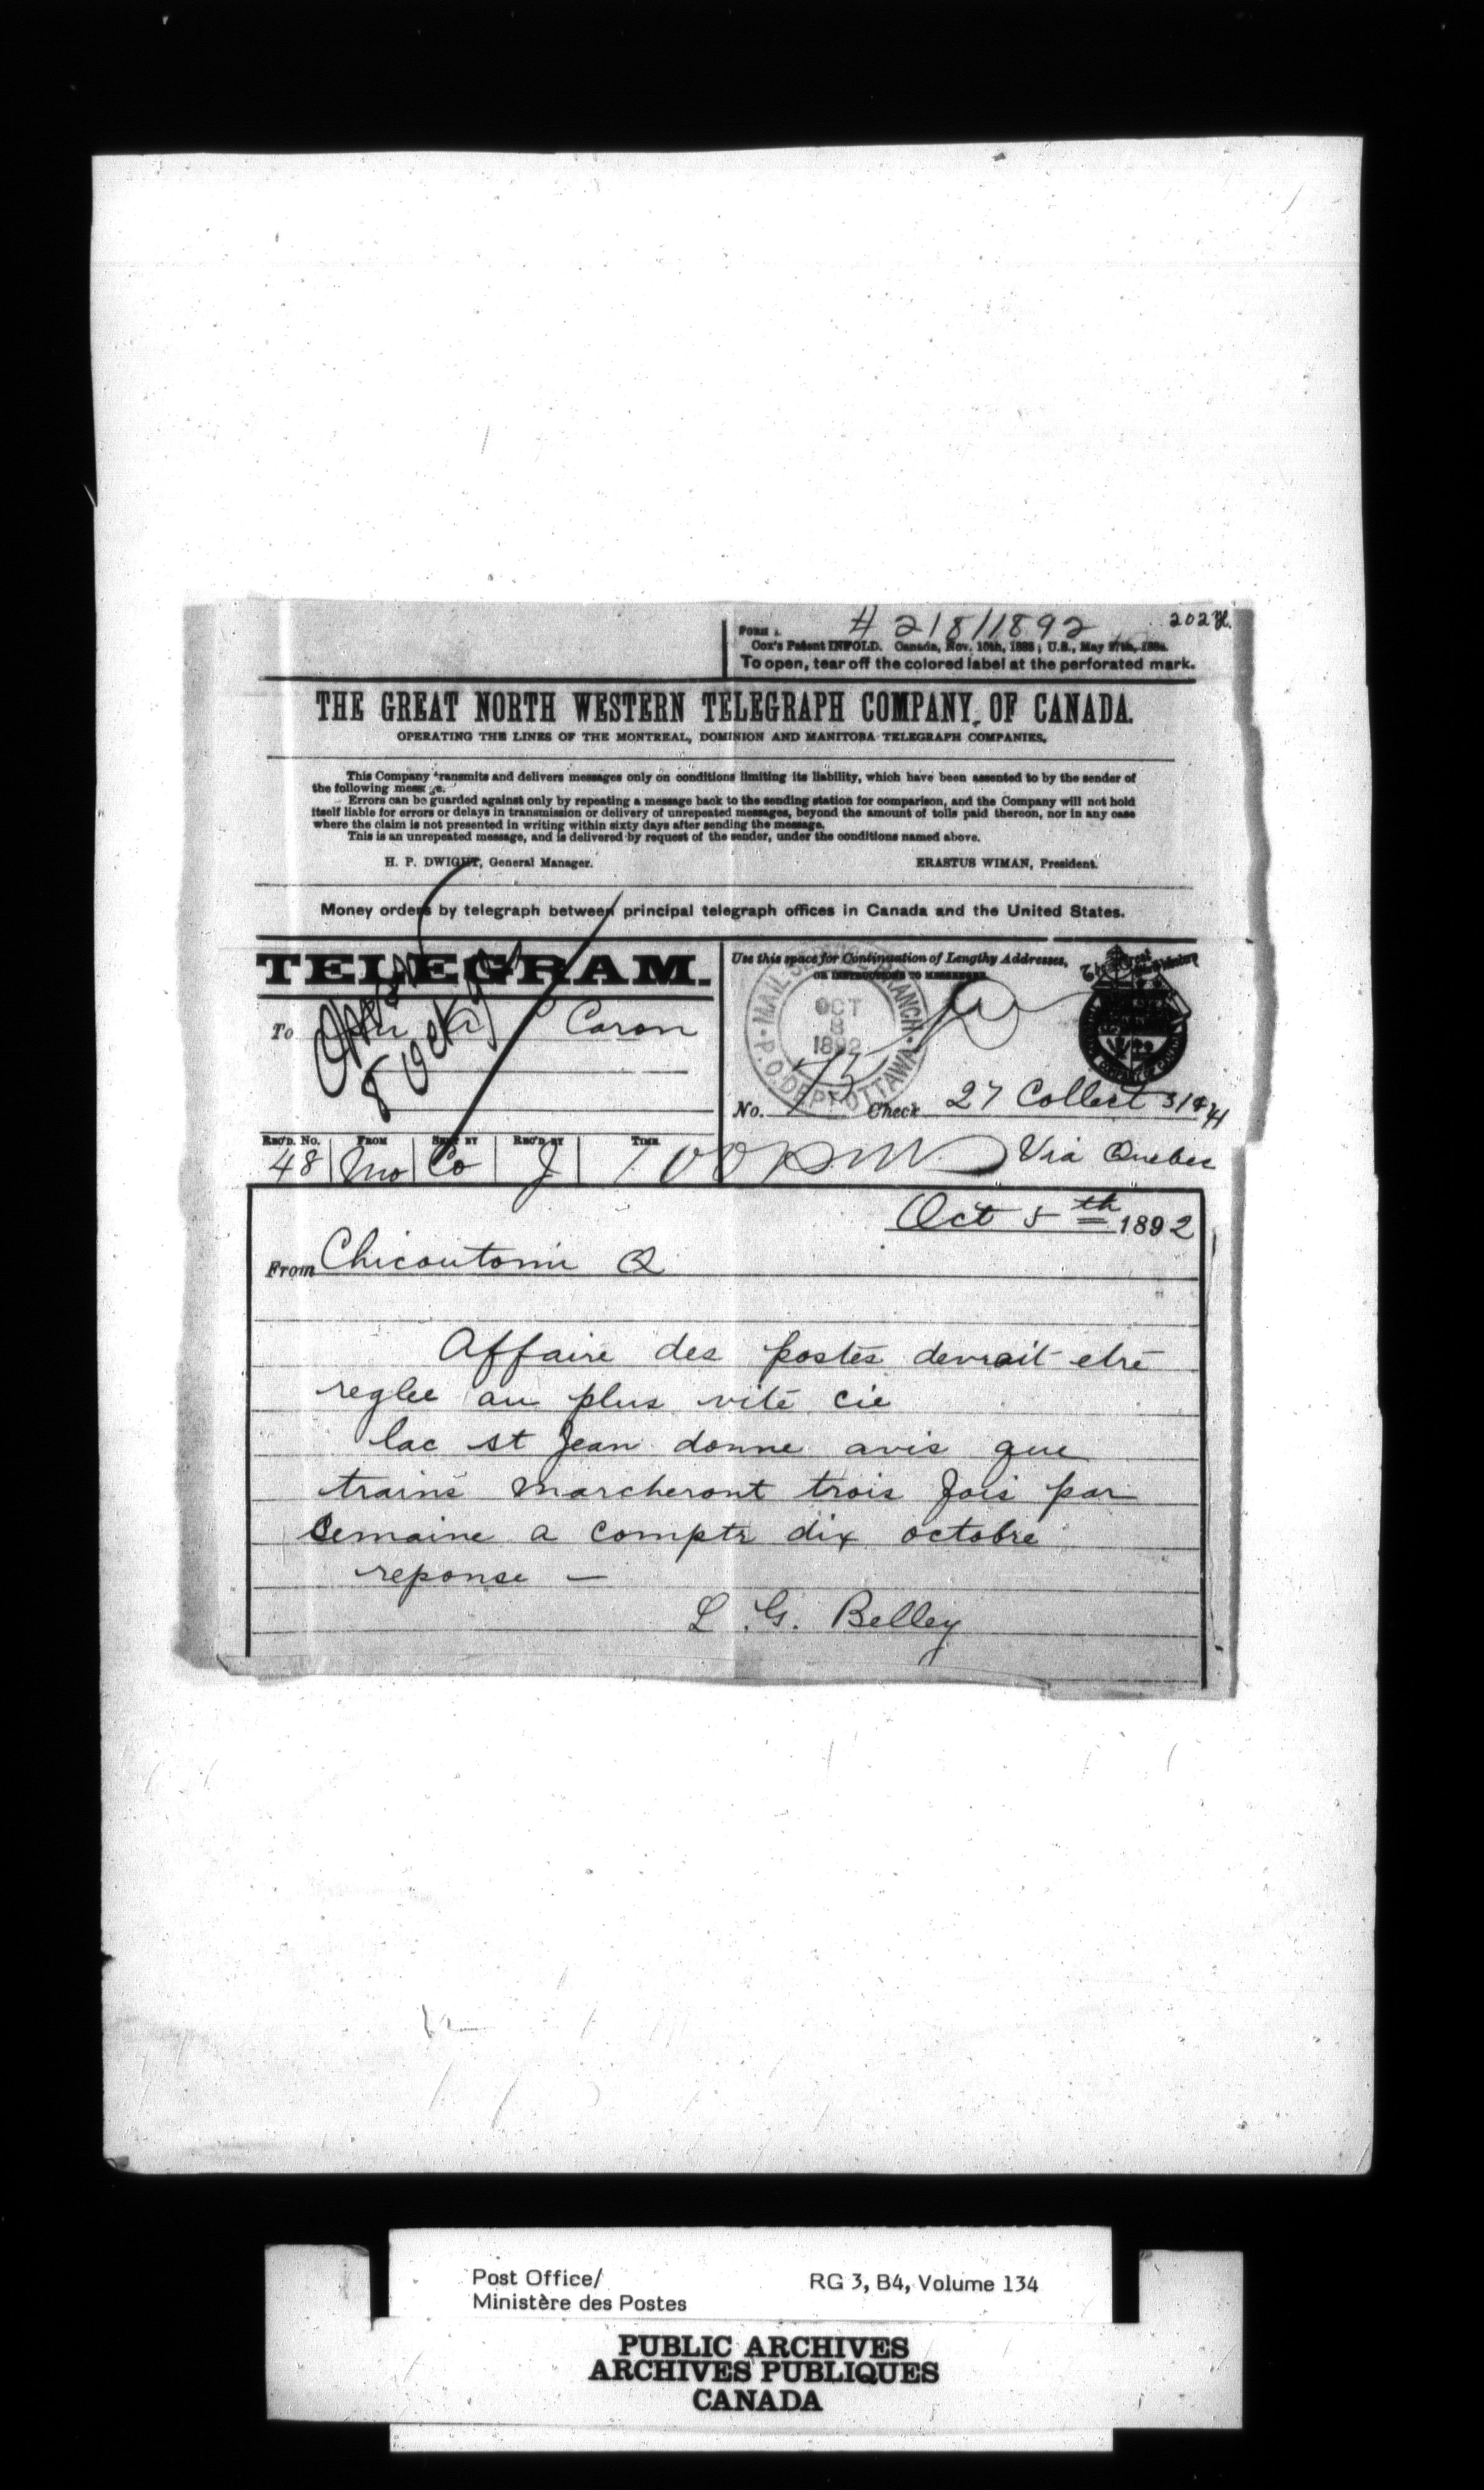 # 218/1892
202
FORM 1.
Cox's Patent INFOLD. Canada, Nov. 10th, 1883; U.S., May 27th, 1884.
To open, tear off the colored label at the perforated mark.
THE GREAT NORTH WESTERN TELEGRAPH COMPANY, OF CANADA.
OPERATING THE LINES OF THE MONTREAL, DOMINION AND MANITOBA TELEGRAPH COMPANIES.
This Company transmits and delivers messages only on conditions limiting its liability, which have been assented to by the sender of
the following message.
Errors can be guarded against only by repeating a message back to the sending station for comparison, and the Company will not hold
itself liable for errors or delays in transmission or delivery of unrepeated messages, beyond the amount of tolls paid thereon, nor in any case
where the claim is not presented in writing within sixty days after sending the message.
This is an unrepeated message, and is delivered by request of the sender, under the conditions named above.
H. P. DWIGHT, General Manager. ERASTUS WIMAN, President.
Money orders by telegraph between principal telegraph offices in Canada and the United States.
TELEGRAM.
Use this space for Continuation of Lengthy Addresses,
OR INSTRUCTIONS TO MESSENGER.
MAIL SERVICE BRANCH
OCT
8
1892
P.O. DEPT OTTAWA
To Caron
8 Oct
No. Check 27 Collect
REC'D. No. FROM SENT BY REC'D BY TIME
48 Mo Co J 1 00 pm Via Quebec
Oct 5th 1892
From Chicoutomi Q
Affaire des postes devrait etre
reglee au plus vite cie
lac st Jean donne avis que
trains marcheront trois fois par
semaine a comptr dix octobre
reponse —
L. G. Belley
Post Office/
Ministère des Postes
RG 3, B4, Volume 134
PUBLIC ARCHIVES
ARCHIVES PUBLIQUES
CANADA